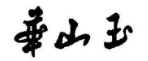 華山玉